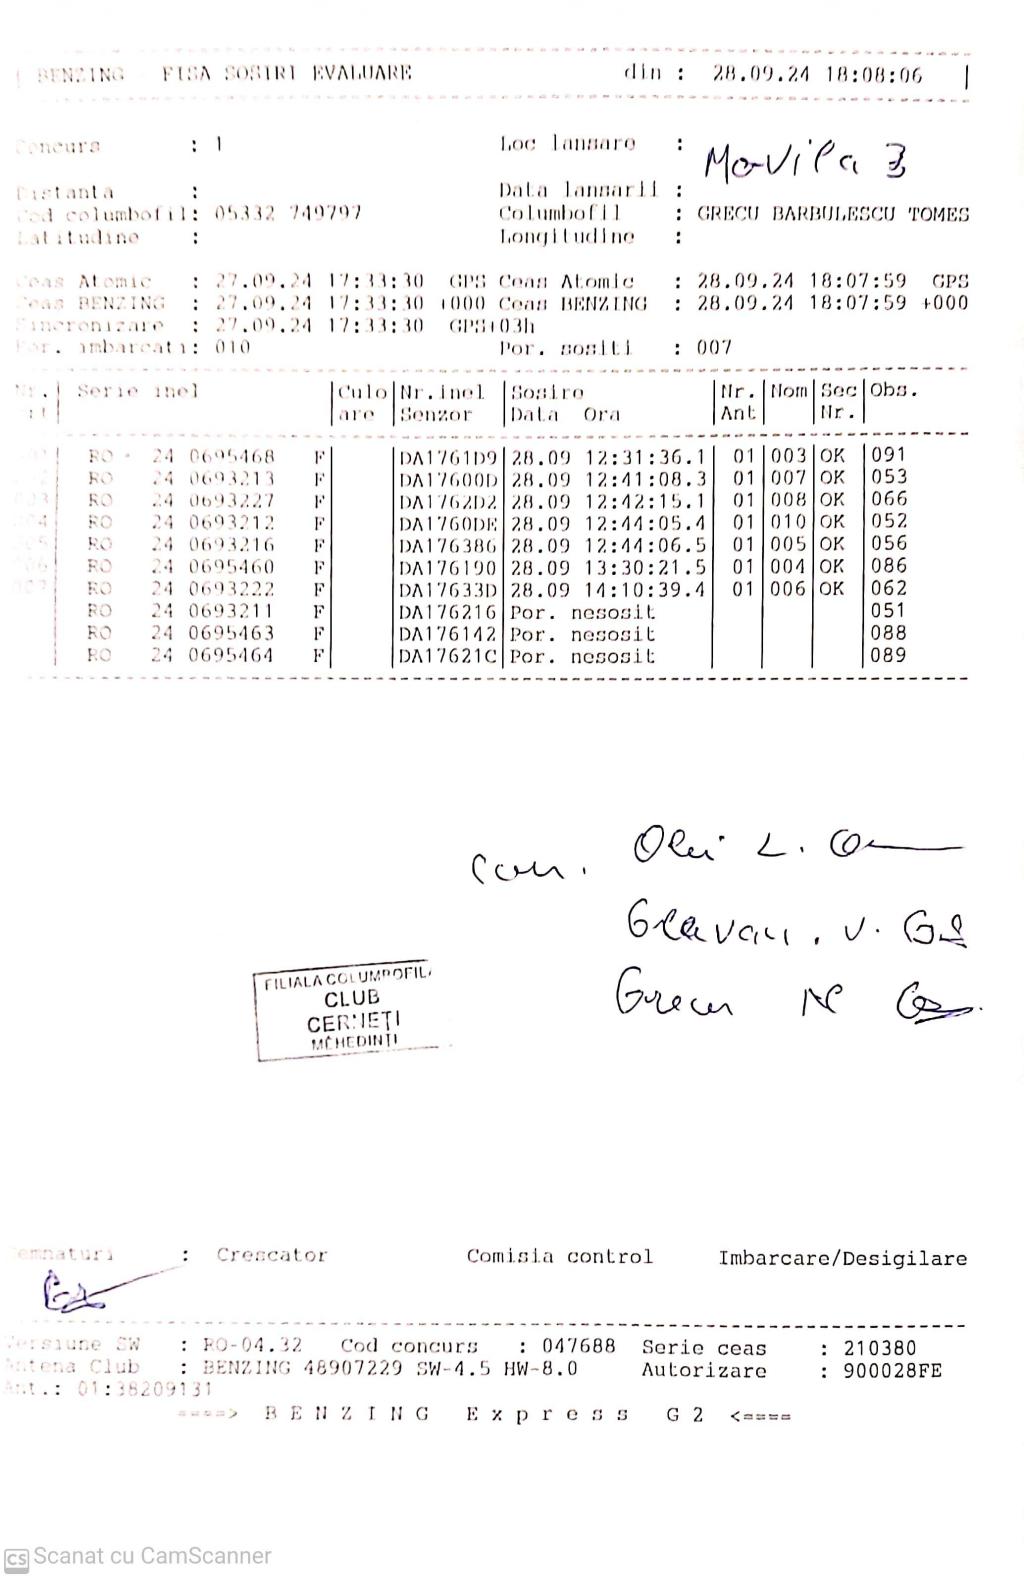 BENZING - FISA SOSIRI EVALUARE din : 28.09.24 18:08:06
Concurs : 1 Loc lansare : Movila 3
Distanta : Data lansarii :
Cod columbofil: 05332 749797 Columbofil : GRECU BARBULESCU TOMES
Latitudine : Longitudine :
Ceas Atomic : 27.09.24 17:33:30 GPS Ceas Atomic : 28.09.24 18:07:59 GPS
Ceas BENZING : 27.09.24 17:33:30 +000 Ceas BENZING : 28.09.24 18:07:59 +000
Sincronizare : 27.09.24 17:33:30 GPS+03h
Por. imbarcati: 010 Por. sositi : 007
Nr. Serie inel Culo Nr.inel Sosire Nr. Nom Sec Obs.
are Senzor Data Ora Ant Nr.
RO - 24 0695468 F DA1761D9 28.09 12:31:36.1 01 003 OK 091
RO 24 0693213 F DA17600D 28.09 12:41:08.3 01 007 OK 053
003 RO 24 0693227 F DA1762D2 28.09 12:42:15.1 01 008 OK 066
004 RO 24 0693212 F DA1760DE 28.09 12:44:05.4 01 010 OK 052
005 RO 24 0693216 F DA176386 28.09 12:44:06.5 01 005 OK 056
006 RO 24 0695460 F DA176190 28.09 13:30:21.5 01 004 OK 086
007 RO 24 0693222 F DA17633D 28.09 14:10:39.4 01 006 OK 062
RO 24 0693211 F DA176216 Por. nesosit 051
RO 24 0695463 F DA176142 Por. nesosit 088
RO 24 0695464 F DA17621C Por. nesosit 089
com. L.
V.
Grecu N
FILIALA COLUMBOFIL
CLUB
CERNETI
MEHEDINTI
Semnaturi : Crescator Comisia control Imbarcare/Desigilare
Versiune SW : RO-04.32 Cod concurs : 047688 Serie ceas : 210380
Antena Club : BENZING 48907229 SW-4.5 HW-8.0 Autorizare : 900028FE
Ant.: 01:38209131
====> B E N Z I N G E x p r e s s G 2 <====
CS Scanat cu CamScanner